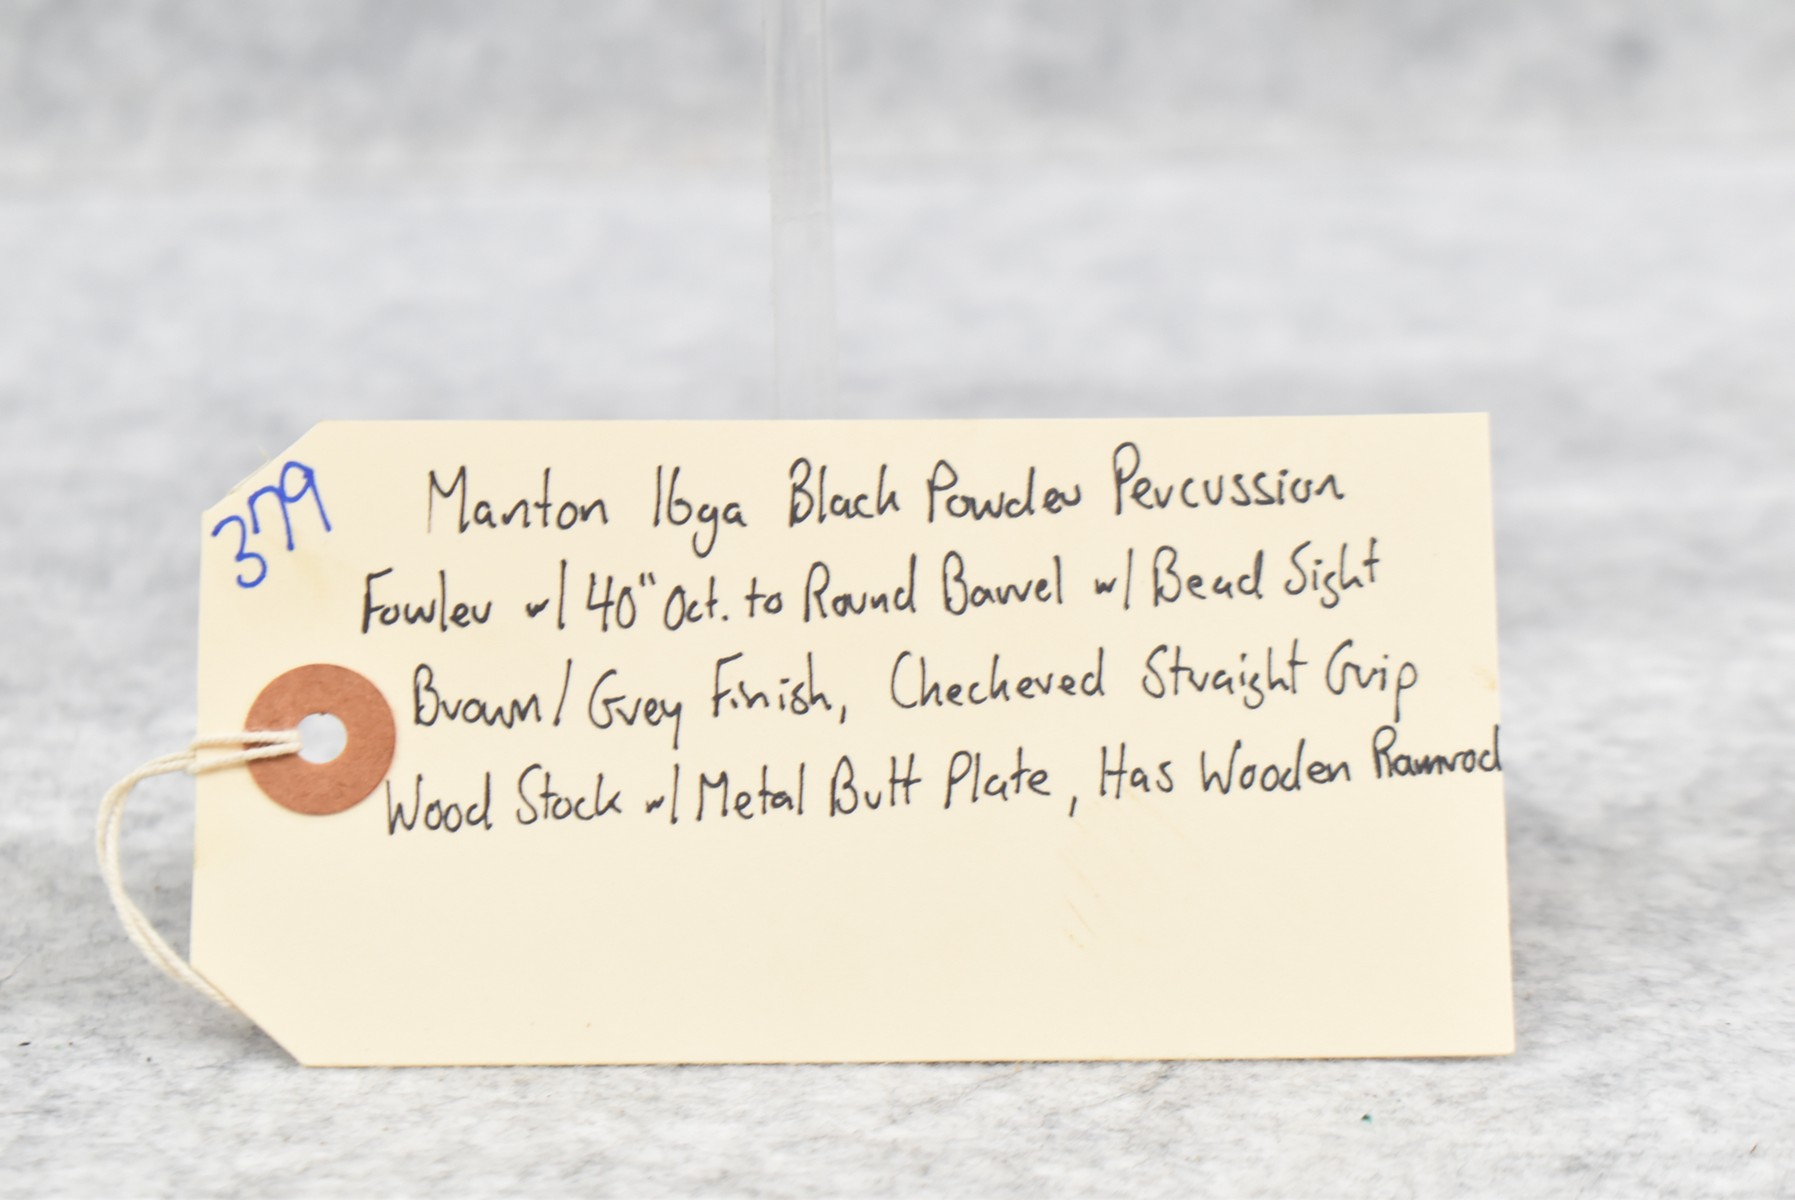 379
Manton 16ga Black Powder Percussion
Fowler w/ 40" Oct. to Round Barrel w/ Bead Sight
Brown/Grey Finish, Checkered Straight Grip
Wood Stock w/ Metal Butt Plate, Has Wooden Ramrod